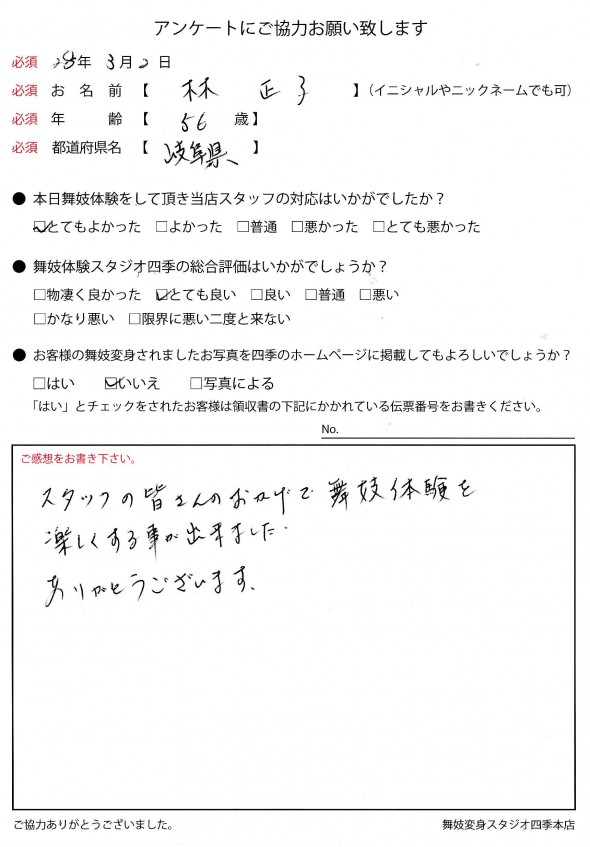 アンケートにご協力お願い致します
必須 28年 3月2日
必須 お名前【 林 正子 】(イニシャルやニックネームでも可)
必須 年齢【 56 歳】
必須 都道府県名【 岐阜県 】
● 本日舞妓体験をして頂き当店スタッフの対応はいかがでしたか?
☑とてもよかった □よかった □普通 □悪かった □とても悪かった
● 舞妓体験スタジオ四季の総合評価はいかがでしょうか?
□物凄く良かった ☑とても良い □良い □普通 □悪い
□かなり悪い □限界に悪い二度と来ない
● お客様の舞妓変身されましたお写真を四季のホームページに掲載してもよろしいでしょうか?
□はい ☑いいえ □写真による
「はい」とチェックをされたお客様は領収書の下記にかかれている伝票番号をお書きください。
No.
ご感想をお書き下さい。
スタッフの皆さんのおかげで舞妓体験を
楽しくする事が出来ました.
ありがとうございます、
ご協力ありがとうございました。
舞妓変身スタジオ四季本店